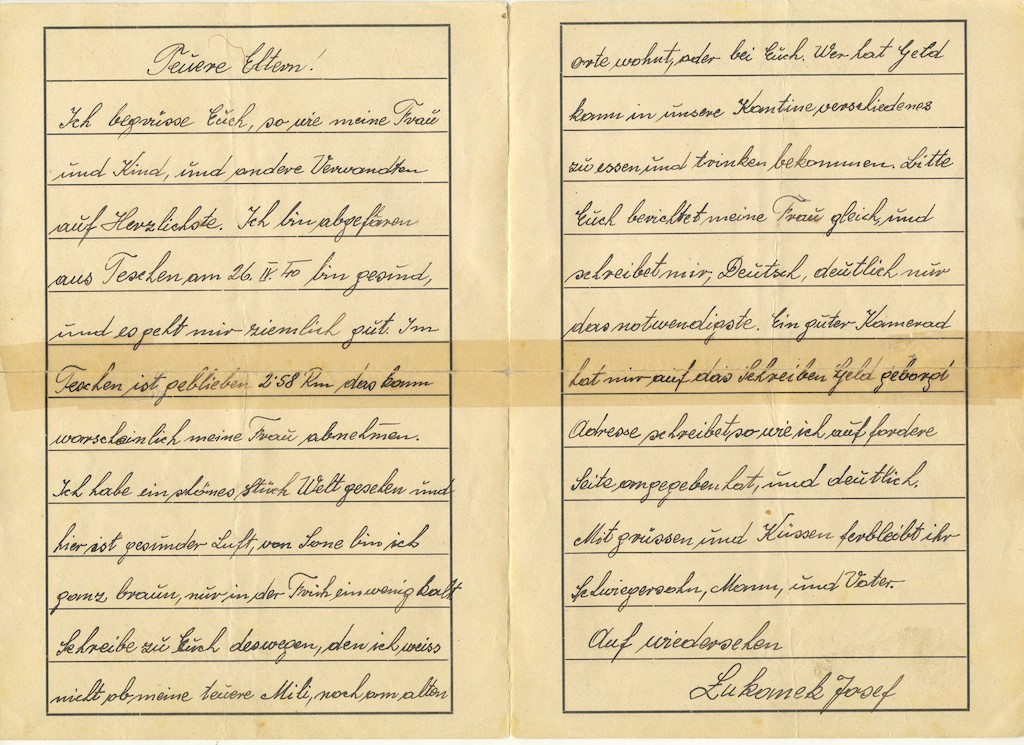 Teuere Eltern!
Ich begrüsse Euch, so wie meine Frau
und Kind, und andere Verwandten
auf Herzlichste. Ich bin abgefaren
aus Teschen am 26. IV. 40 bin gesund,
und es geht mir ziemlich gut. Im
Teschen ist geblieben 2.58 Rm das kann
warscheinlich meine Frau abnehmen.
Ich habe ein schönes Stück Welt gesehen und
hier ist gesunder Luft, von Sone bin ich
ganz braun, nur, in der Früh ein wenig kalt
Schreibe zu Euch deswegen, den ich weiss
nicht ob meine teuere Mili, noch am alten
orte wohnt, oder bei Euch. Wer hat Geld
kann in unsere Kantine verschiedenes
zu essen, und trinken bekommen. Bitte
Euch berichtet meine Frau gleich, und
schreibet mir, Deutsch, deutlich nur
das notwendigste. Ein guter Kamerad
hat mir auf das Schreiben Geld geborgt
Adresse schreibet so wie ich auf fordere
Seite angegeben hat, und deutlich.
Mit grüssen und Küssen ferbleibt ihr
Schwiegersohn, Mann, und Vater.
Auf wiedersehen
Lukanek Josef